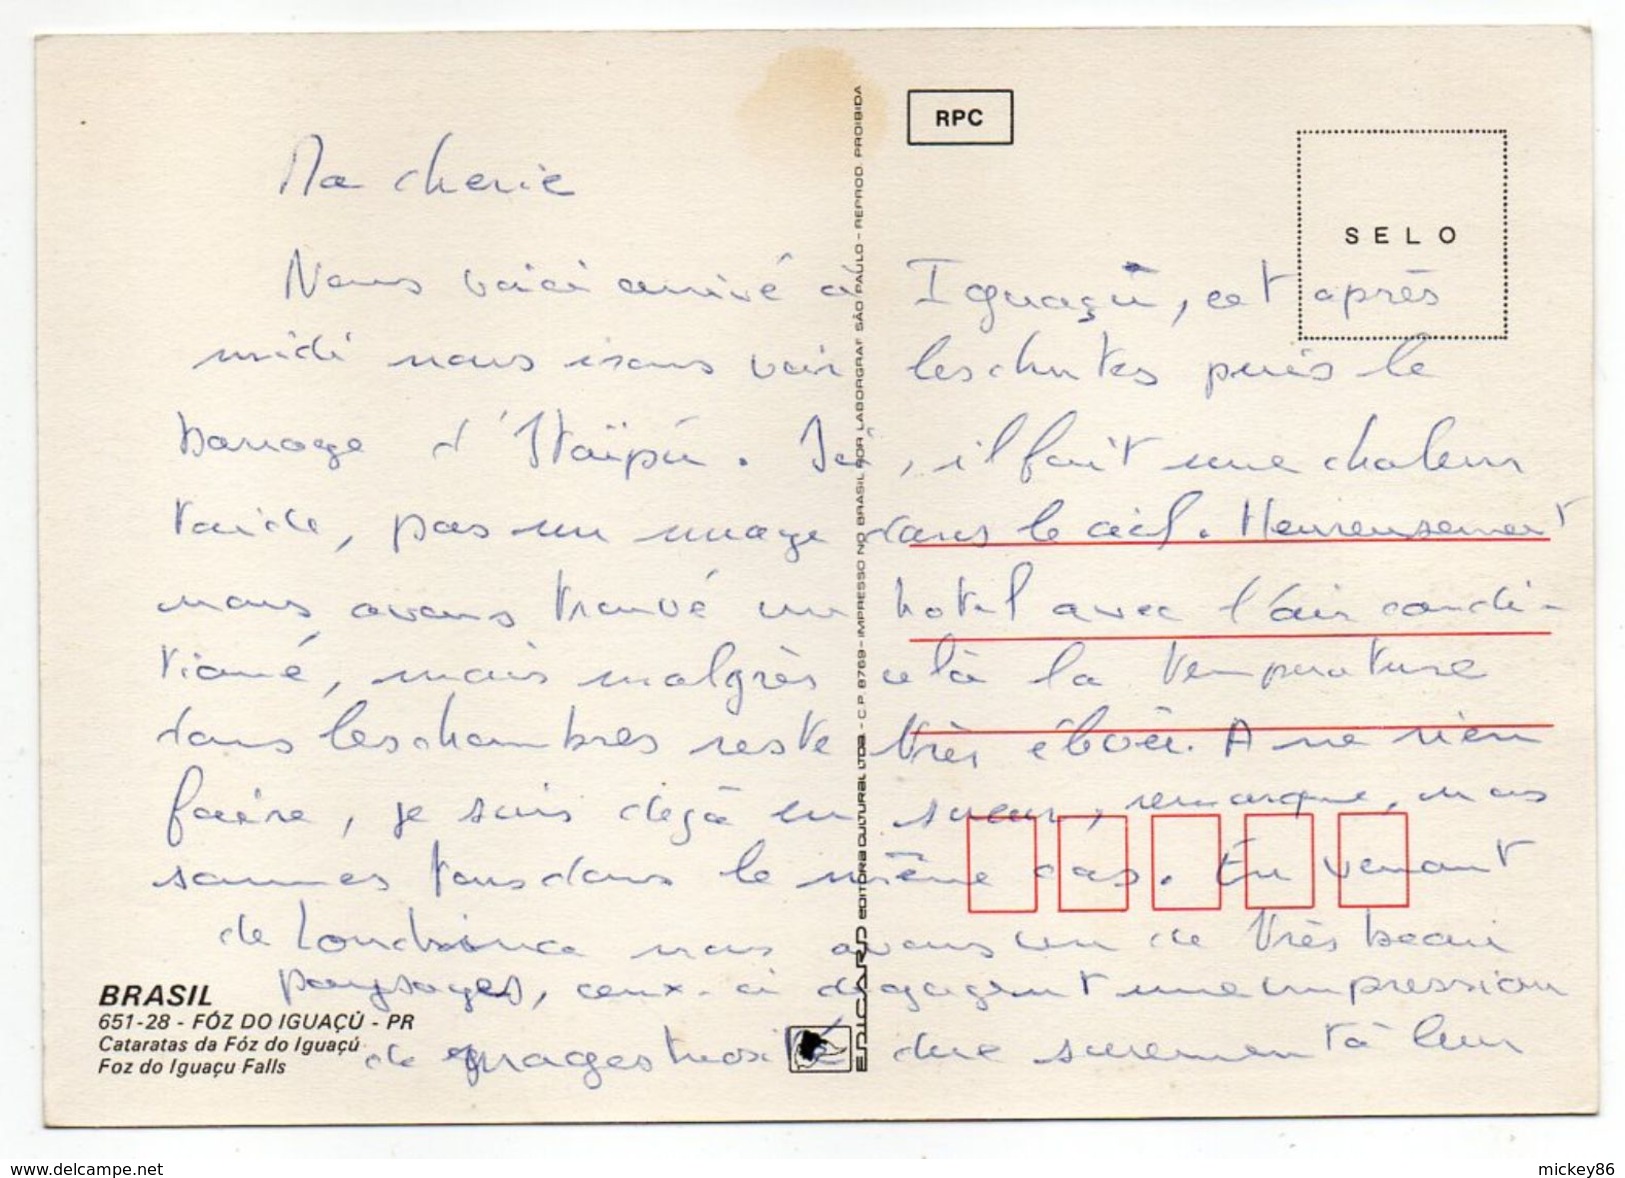 Ma cherie
Nous voici arrivé à Iguaçu, cet après
midi nous irons voir les chutes puis le
barrage d'Itaïpù. Ici, il fait une chaleur
toride, pas un nuage dans le ciel. Heureusement
nous avons trouvé un hotel avec l'air condi-
tioné, mais malgrès celà la température
dans les chambres reste très élevée. A ne rien
faire, je suis dejà en sueur, remarque, nous
sommes tous dans le même cas. En venant
de Londrina nous avons vu de très beaux
paysages, ceux-ci dégagent une impression
de due surement à leur
RPC
SELO
BRASIL
651-28 - FÓZ DO IGUAÇÚ - PR
Cataratas da Fóz do Iguaçú
Foz do Iguaçu Falls
EDICARD EDITORA CULTURAL LTDA. - C.P. 8769 - IMPRESSO NO BRASIL POR LABORGRAF SÃO PAULO - REPROD. PROIBIDA
www.delcampe.net
mickey86